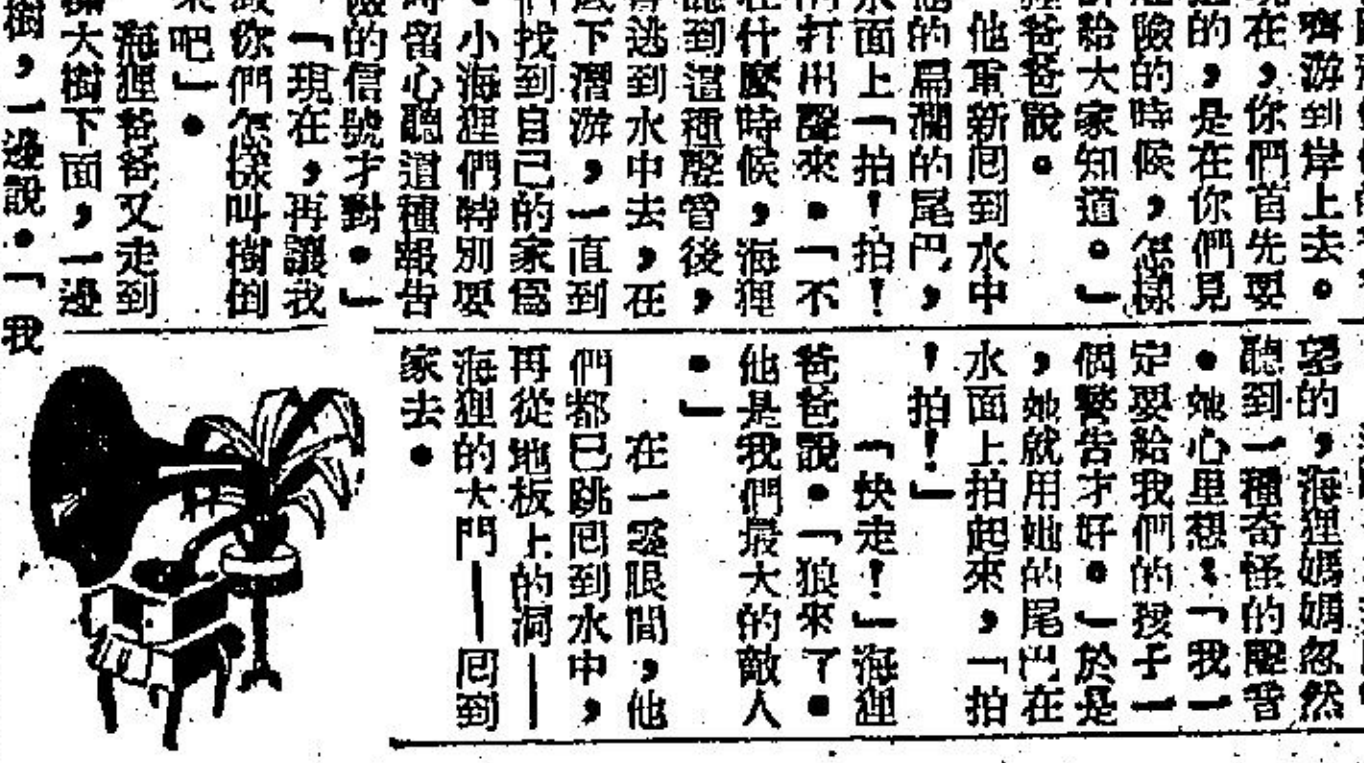 嚌游到岸上去。
現在,你們首先要
的,是在你們見
險的時候,怎樣
給大家知道。」
爸爸說。
他重新囘到水中
的扁濶的尾巴,
水面上「拍!拍!
的打出聲來。「不
在什麼時候,海狸
聽到這種聲音後,
逃到水中去,在
底下潛游,一直到
們找到自己的家爲
。小海狸們特別要
時留心聽這種報告
險的信號才對。」
「現在,再讓我
教你們怎樣叫樹倒
來吧」。
海狸爸爸又走到
大樹下面,一邊
樹,一邊說。「我
望的,海狸媽媽忽然
聽到一種奇怪的聲音
。她心里想:「我一
定要給我們的孩子一
個警告才好。」於是
,她就用她的尾巴在
水面上拍起來,「拍
!拍!」
「快走!」海狸
爸爸說。「狼來了。
他是我們最大的敵人
。」
在一霎眼間,他
們都已跳囘到水中,
再從地板上的洞——
海狸的大門——囘到
家去。